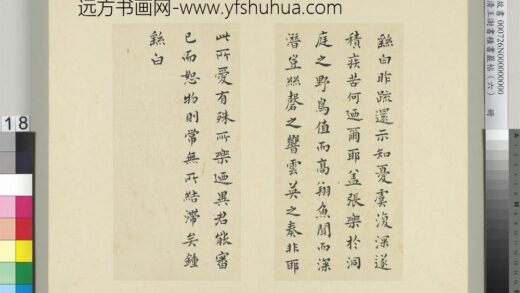 远方书画网-www.yfshuhua.com
故書 000726N00000000
清王澍書積書巖帖(六) 冊
繇白昨疏還示知憂虞復深遂
積疾苦何迺爾耶蓋張樂於洞
庭之野鳥值而高翔魚聞而深
潛豈絲磬之響雲英之奏非耶
此所愛有殊所樂迺異君能審
己而恕物則常無所結滯矣鍾
繇白
18